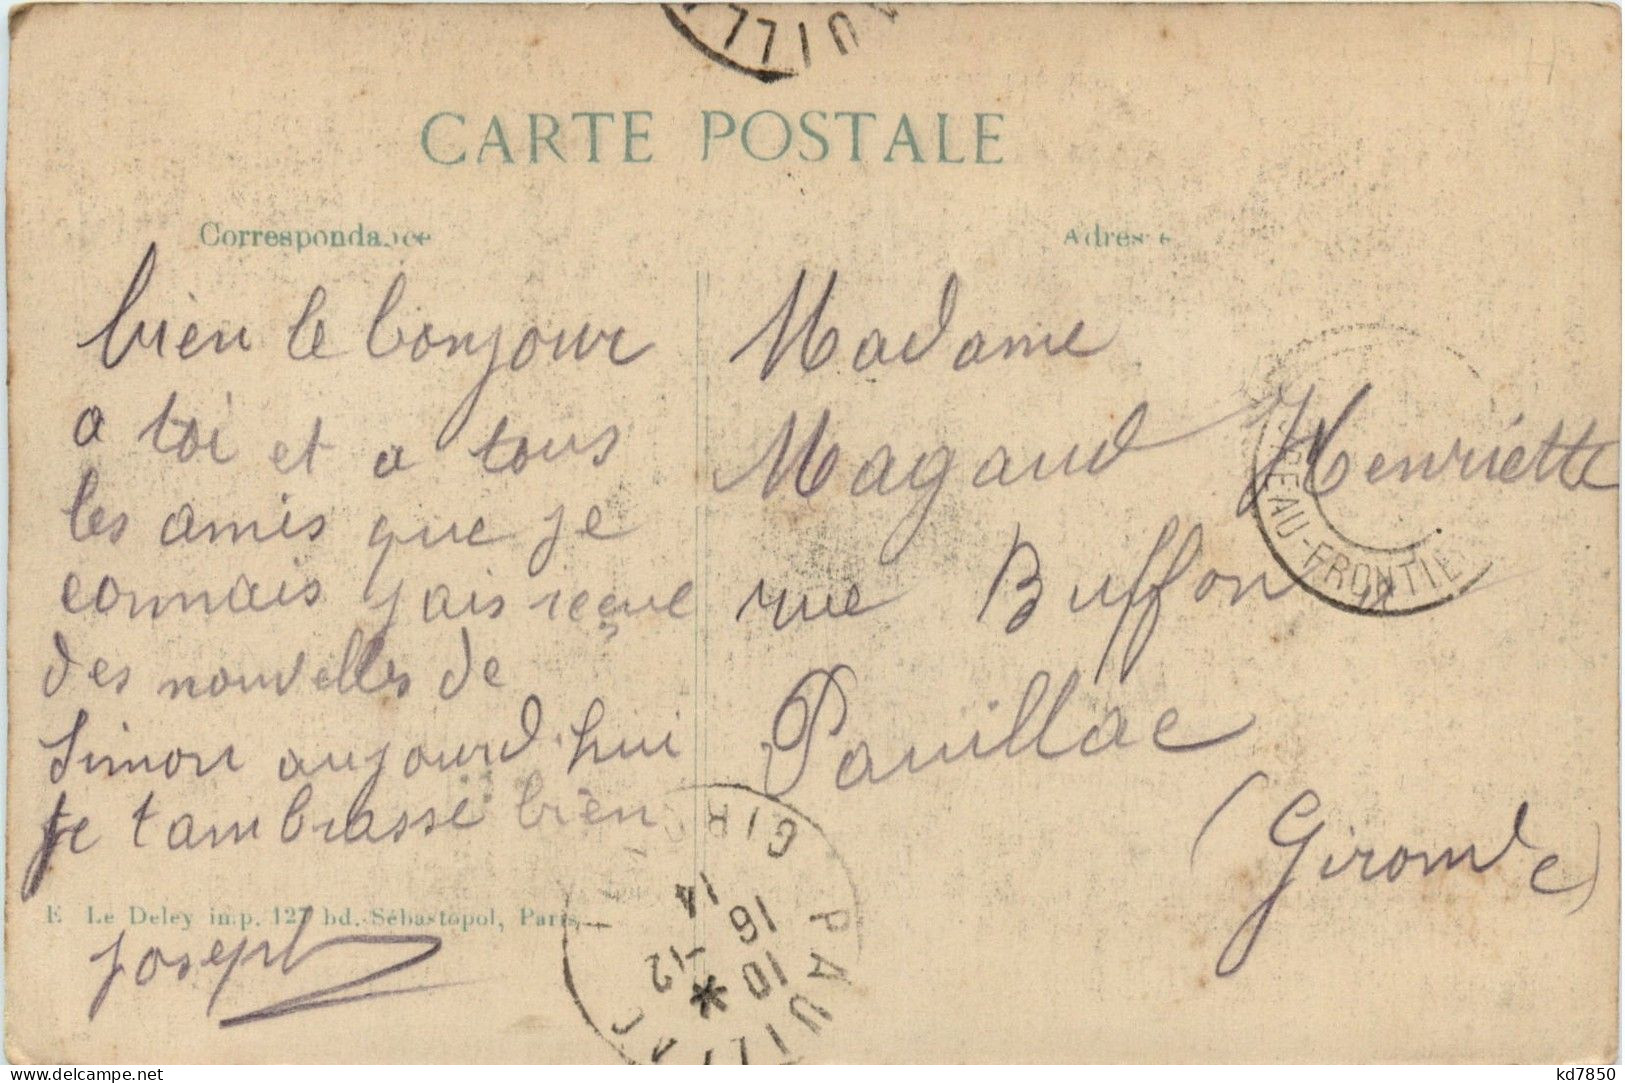 UILL
CARTE POSTALE
Correspondance
Adresse
bien le bonjour
a toi et a tous
les amis que je
connais j'ais reçue
des nouvelles de
Simon aujourd'hui
je tambrasse bien
Joseph
Madame
Magaud Henriette
rue Buffon
Pauillac
(Gironde)
EAU-FRONTIE
E. Le Deley imp. 127 bd. Sébastopol, Paris
PAUILLAC
GIR
16
10 -12
14
www.delcampe.net
kd7850